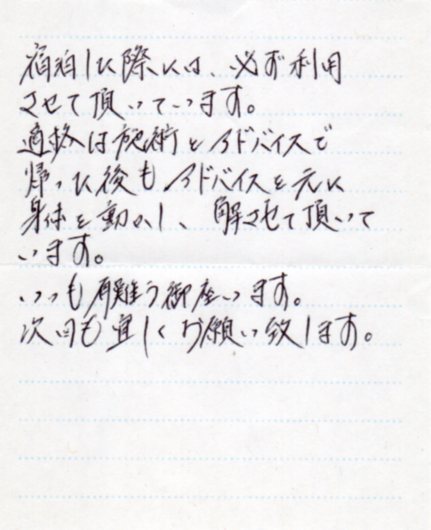 宿泊した際には、必ず利用
させて頂いています。
適格な施術とアドバイスで
帰った後もアドバイスを元に
身体を動かし、解させて頂いて
います。
いつも有難う御座います。
次回も宜しくお願い致します。